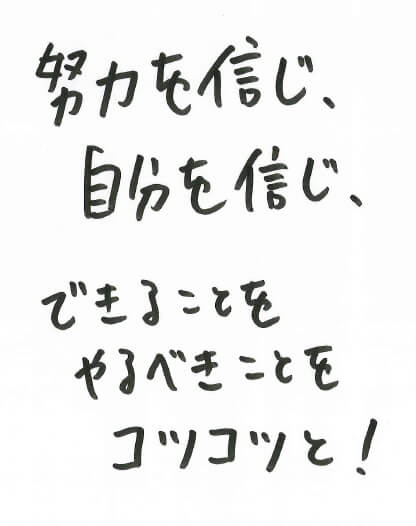 努力を信じ、
自分を信じ、
できることを
やるべきことを
コツコツと!